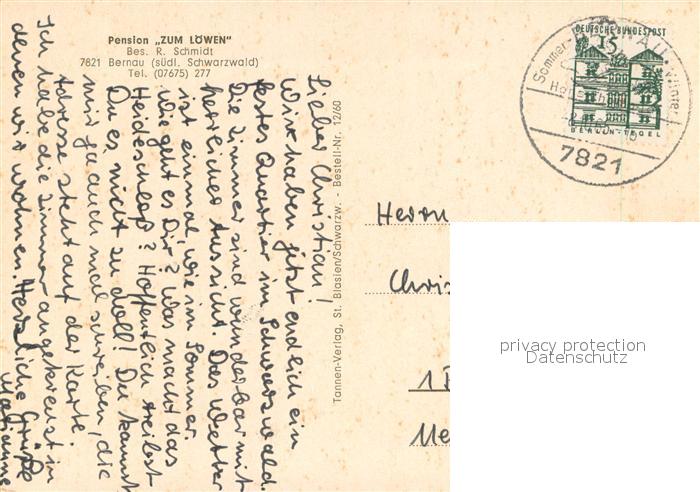 Pension „ZUM LÖWEN"
Bes. R. Schmidt
7821 Bernau (südl. Schwarzwald)
Tel. (07675) 277
Lieber Christian!
Wir haben jetzt endlich ein
festes Quartier im Schwarzwald.
Die Zimmer sind wunderbar mit
herrlicher Aussicht. Das Wetter
ist einmal, wie im Sommer.
Wie geht es Dir? Was macht das
Heideschloß? Hoffentlich treibst
Du es nicht zu doll! Du kannst
mir ja auch mal schreiben, die
Adresse steht auf der Karte.
Ich habe die Zimmer angekreuzt in
denen wir wohnen. Herzliche Grüße
Marianne
Tannen-Verlag, St. Blasien/Schwarzw. - Bestell-Nr. 12/60
DEUTSCHE BUNDESPOST
15
BERLIN-TEGEL
BERNAU
Sommer-
Winter
7821
Herrn
Chris
1
privacy protection
Datenschutz